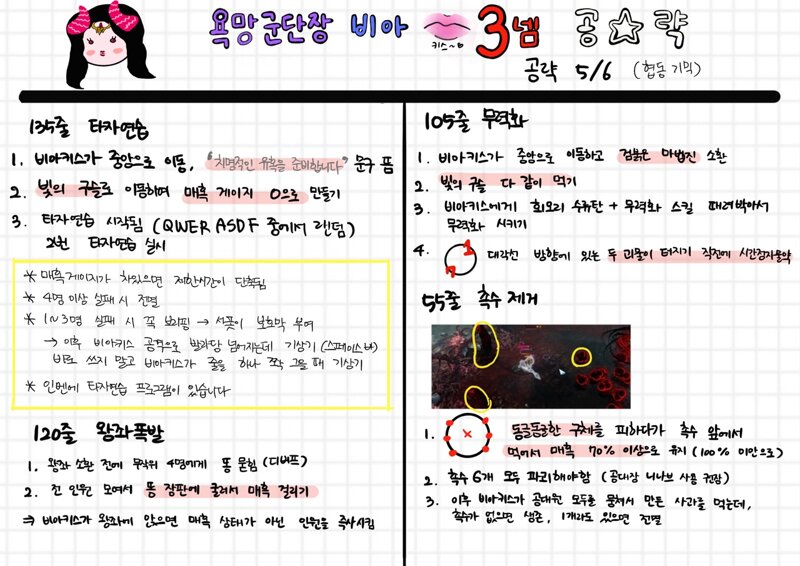 욕망군단장 비아 키스~♡ 3넴 공☆략
공략 5/6 (협동 기믹)
135줄 타자연습
1. 비아키스가 중앙으로 이동, "치명적인 유혹을 준비합니다" 문구 뜸
2. 빛의 구슬로 이동하여 매혹 게이지 0으로 만들기
3. 타자연습 시작됨 (QWER ASDF 중에서 랜덤)
2번 타자연습 실시
* 매혹게이지가 차있으면 제한시간이 단축됨
* 4명 이상 실패 시 전멸
* 1~3명 실패 시 꼭 브리핑 → 서폿이 보호막 부여
→ 이후 비아키스 공격으로 발라당 넘어지는데 기상기 (스페이스 바)
바로 쓰지 말고 비아키스가 줄을 하나 쫙 그을 때 기상기
* 인벤에 타자연습 프로그램이 있습니다
120줄 왕좌폭발
1. 왕좌 소환 전에 무작위 4명에게 똥 묻힘 (디버프)
2. 전 인원 모여서 똥 장판에 굴러서 매혹 걸리기
⇒ 비아키스가 왕좌에 앉으면 매혹 상태가 아닌 인원을 즉사시킴
105줄 무력화
1. 비아키스가 중앙으로 이동하고 검붉은 마법진 소환
2. 빛의 구슬 다 같이 먹기
3. 비아키스에게 회오리 수류탄 + 무력화 스킬 때려박아서
무력화 시키기
4. 1 7 대각선 방향에 있는 두 괴물이 터지기 직전에 시간정지물약
55줄 촉수 제거
1. 동글동글한 구체를 피하다가 촉수 앞에서
먹어서 매혹 70% 이상으로 유지 (100% 미만으로)
2. 촉수 6개 모두 파괴해야함 (공대장 니나브 사용 권장)
3. 이후 비아키스가 공대원 모두를 뭉쳐서 만든 사과를 먹는데,
촉수가 없으면 생존, 1개라도 있으면 전멸